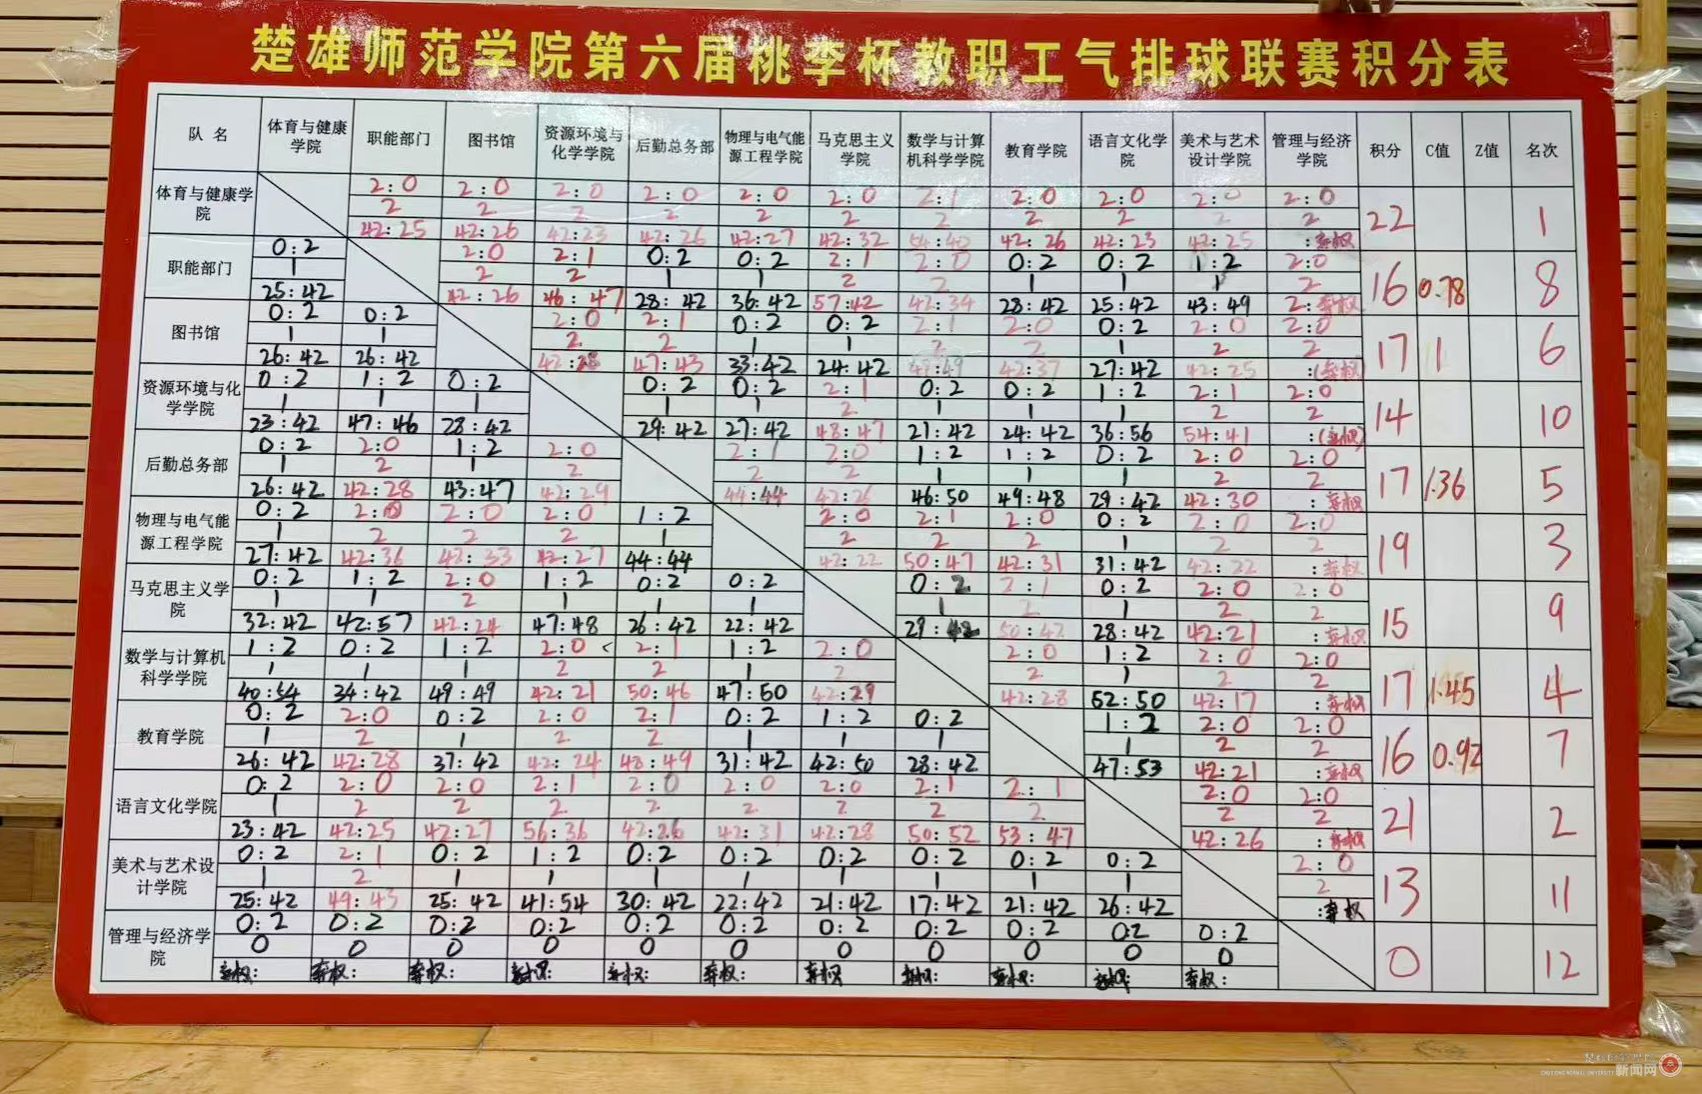 楚雄师范学院第六届桃李杯教职工气排球联赛积分表
队 名 体育与健康学院 职能部门 图书馆 资源环境与化学学院 后勤总务部 物理与电气能源工程学院 马克思主义学院 数学与计算机科学学院 教育学院 语言文化学院 美术与艺术设计学院 管理与经济学院 积分 C值 Z值 名次
体育与健康学院 2:0 2:0 2:0 2:0 2:0 2:0 2:1 2:0 2:0 2:0 2:0
2 2 2 2 2 2 2 2 2 2 2 22 1
42:25 42:26 42:23 42:26 42:27 42:32 54:40 42:26 42:23 42:25 :弃权
职能部门 0:2 2:0 2:1 0:2 0:2 2:1 2:0 0:2 0:2 1:2 2:0
1 2 2 1 1 2 2 1 1 1 2 16 0.78 8
25:42 42:26 46:47 28:42 36:42 57:42 42:34 28:42 25:42 43:49 2:弃权
图书馆 0:2 0:2 2:0 2:1 0:2 0:2 2:1 2:0 0:2 2:0 2:0
1 1 2 2 1 1 2 2 1 2 2 17 1 6
26:42 26:42 42:28 47:43 33:42 24:42 49:49 42:37 27:42 42:25 :(弃权)
资源环境与化学学院 0:2 1:2 0:2 0:2 0:2 2:1 0:2 0:2 1:2 2:1 2:0
1 1 1 1 1 2 1 1 1 2 2 14 10
23:42 47:46 28:42 29:42 27:42 48:47 21:42 24:42 36:56 54:41 :(弃权)
后勤总务部 0:2 2:0 1:2 2:0 2:1 2:0 1:2 1:2 0:2 2:0 2:0
1 2 1 2 2 2 1 1 1 2 2 17 1.36 5
26:42 42:28 43:47 42:29 44:44 42:26 46:50 49:48 29:42 42:30 :弃权
物理与电气能源工程学院 0:2 2:0 2:0 2:0 1:2 2:0 2:1 2:0 0:2 2:0 2:0
1 2 2 2 1 2 2 2 1 2 2 19 3
27:42 42:36 42:33 42:27 44:44 42:22 50:47 42:31 31:42 42:22 :弃权
马克思主义学院 0:2 1:2 2:0 1:2 0:2 0:2 0:2 2:1 0:2 2:0 2:0
1 1 2 1 1 1 1 2 1 2 2 15 9
32:42 42:57 42:24 47:48 26:42 22:42 29:42 50:42 28:42 42:21 :弃权
数学与计算机科学学院 1:2 0:2 1:2 2:0 2:1 1:2 2:0 2:0 1:2 2:0 2:0
1 1 1 2 2 1 2 2 1 2 2 17 1.45 4
40:54 34:42 49:49 42:21 50:46 47:50 42:29 42:28 52:50 42:17 :弃权
教育学院 0:2 2:0 0:2 2:0 2:1 0:2 1:2 0:2 1:2 2:0 2:0
1 2 1 2 2 1 1 1 1 2 2 16 0.92 7
26:42 42:28 37:42 42:24 48:49 31:42 42:50 28:42 47:53 42:21 :弃权
语言文化学院 0:2 2:0 2:0 2:1 2:0 2:0 2:0 2:1 2:1 2:0 2:0
1 2 2 2 2 2 2 2 2 2 2 21 2
23:42 42:25 42:27 56:36 42:26 42:31 42:28 50:52 53:47 42:26 :弃权
美术与艺术设计学院 0:2 2:1 0:2 1:2 0:2 0:2 0:2 0:2 0:2 0:2 2:0
1 2 1 1 1 1 1 1 1 1 2 13 11
25:42 49:43 25:42 41:54 30:42 22:42 21:42 17:42 21:42 26:42 :弃权
管理与经济学院 0:2 0:2 0:2 0:2 0:2 0:2 0:2 0:2 0:2 0:2 0:2
0 0 0 0 0 0 0 0 0 0 0 0 12
弃权: 弃权: 弃权: 弃权: 弃权: 弃权: 弃权 弃权: 弃权: 弃权 弃权:
新闻网
CHUXIONG NORMAL UNIVERSITY